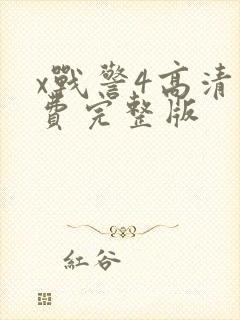 x戰警4高清
費完整版
紅谷